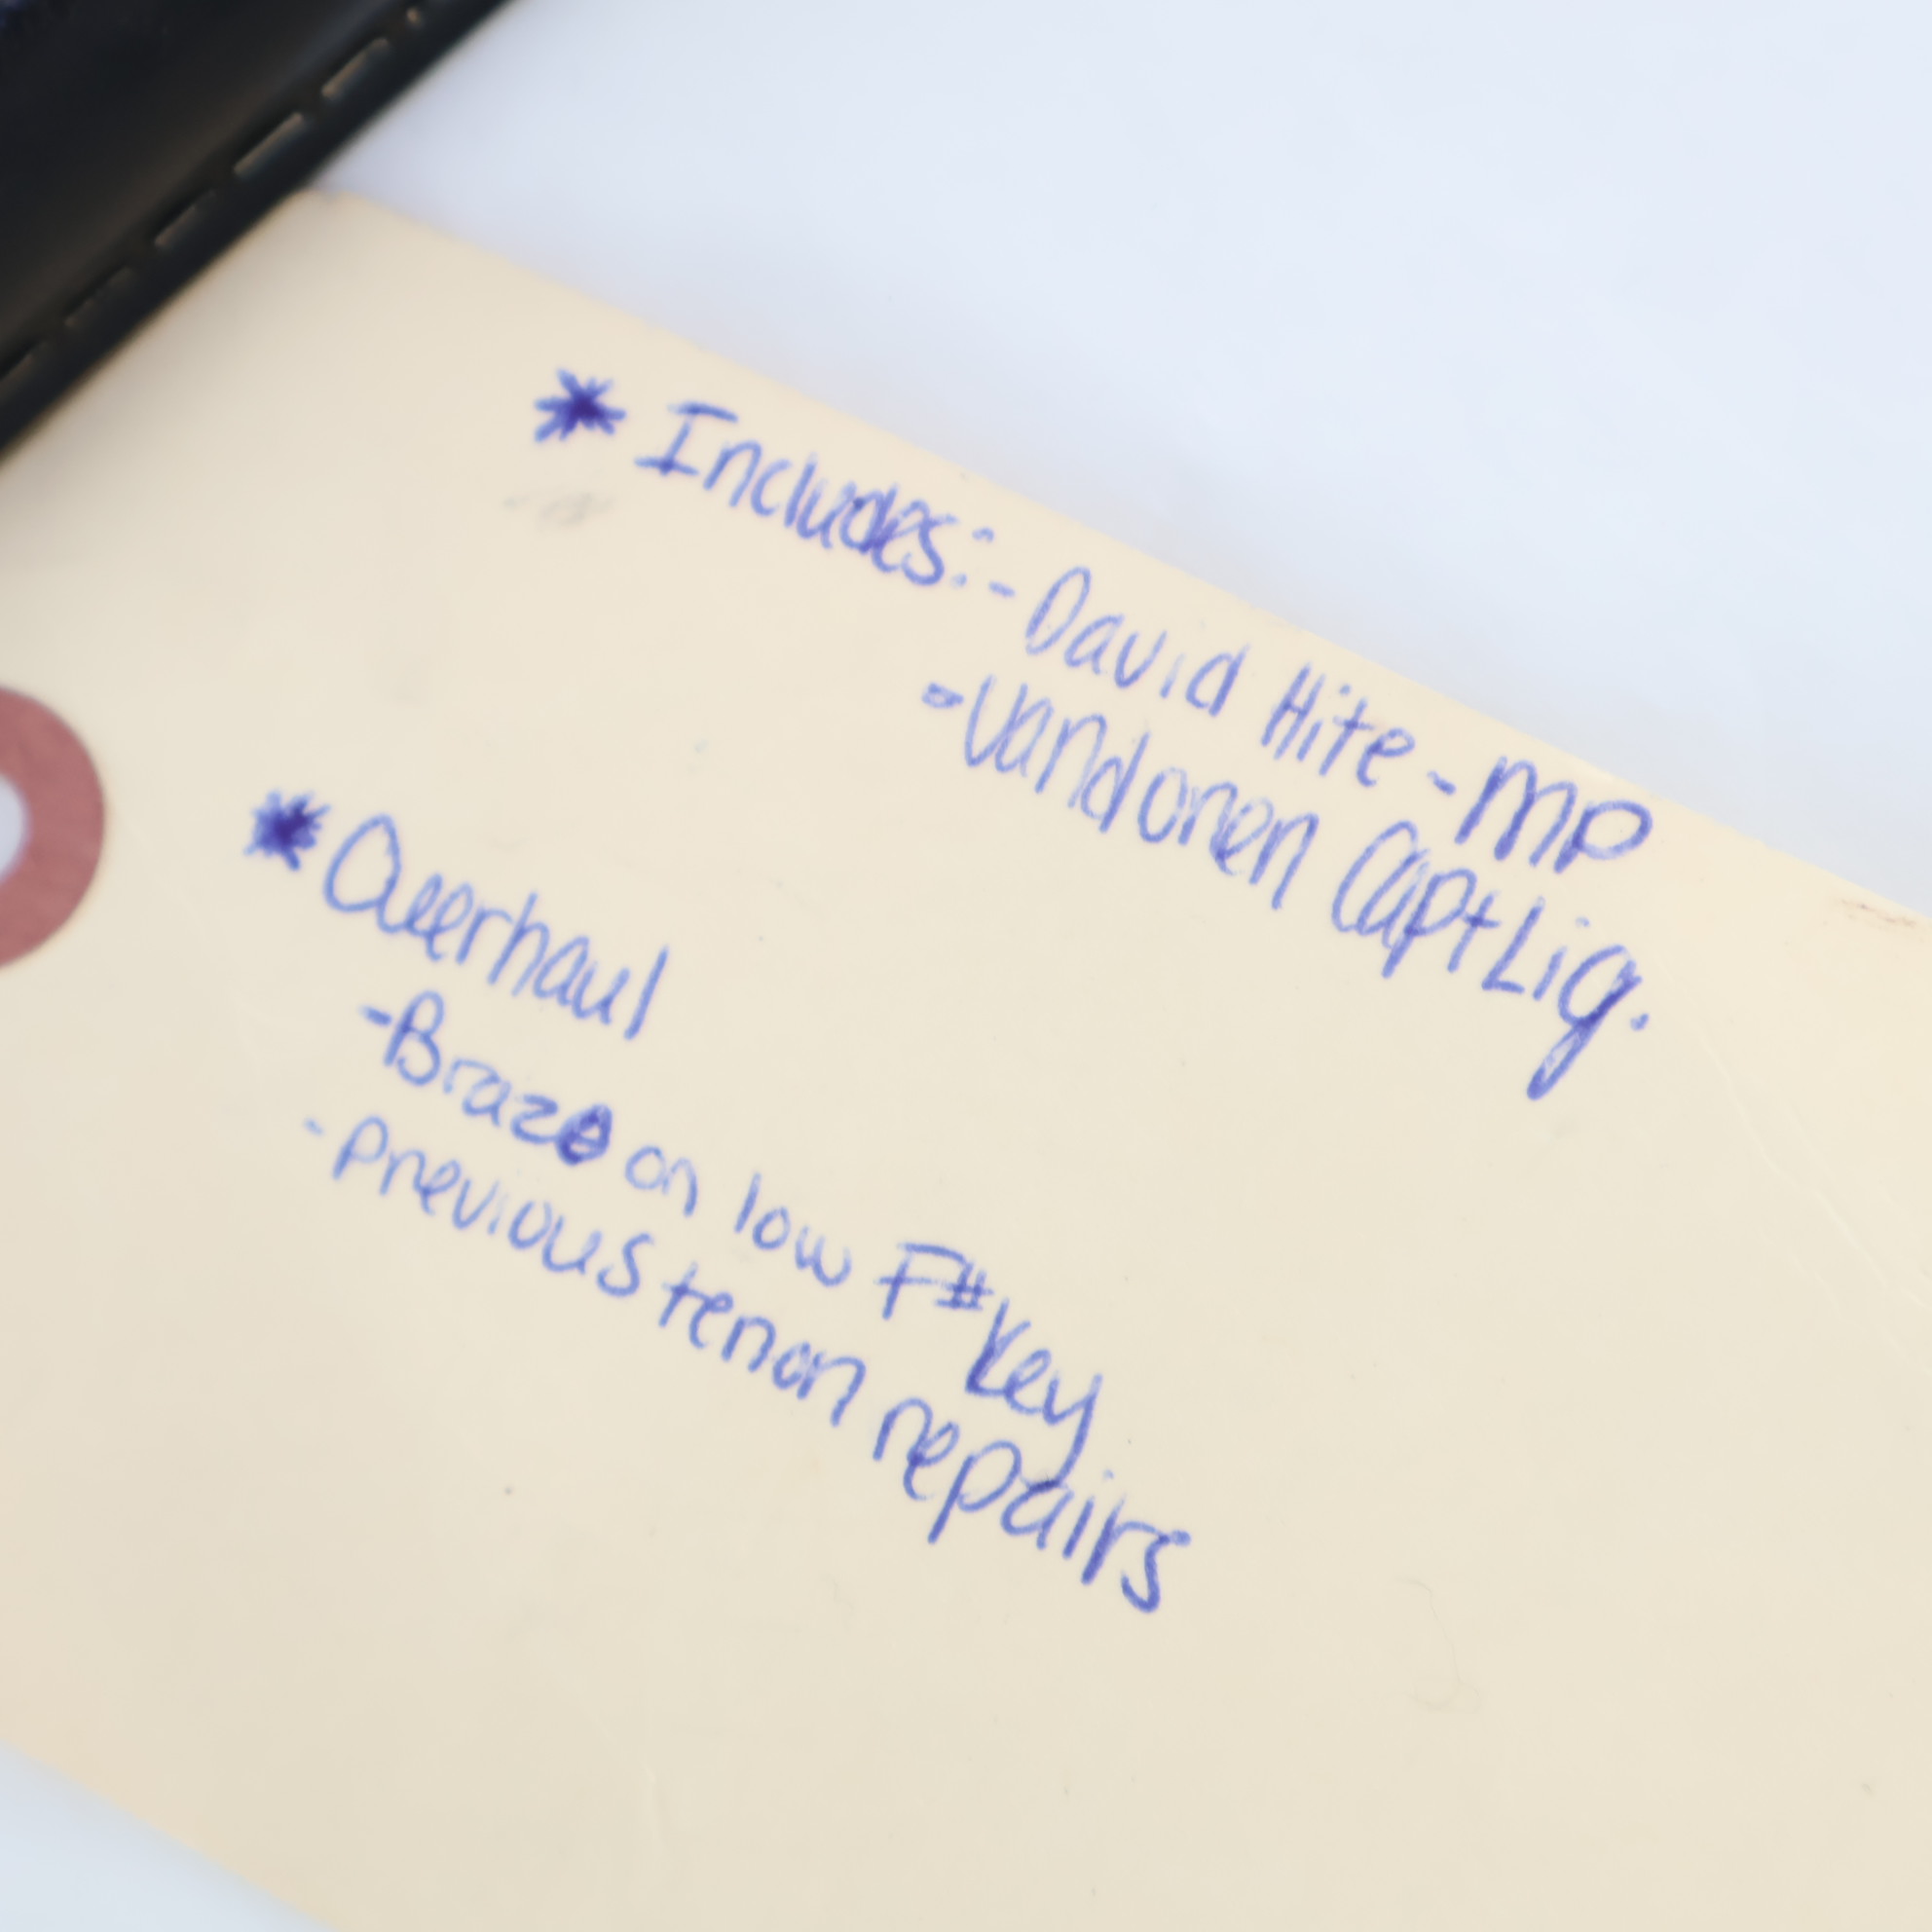 * Includes: - David Hite - MP
- Vandoren Cap+Lig.
* Overhaul
- Braze on low F# Key
- Previous tenon repairs